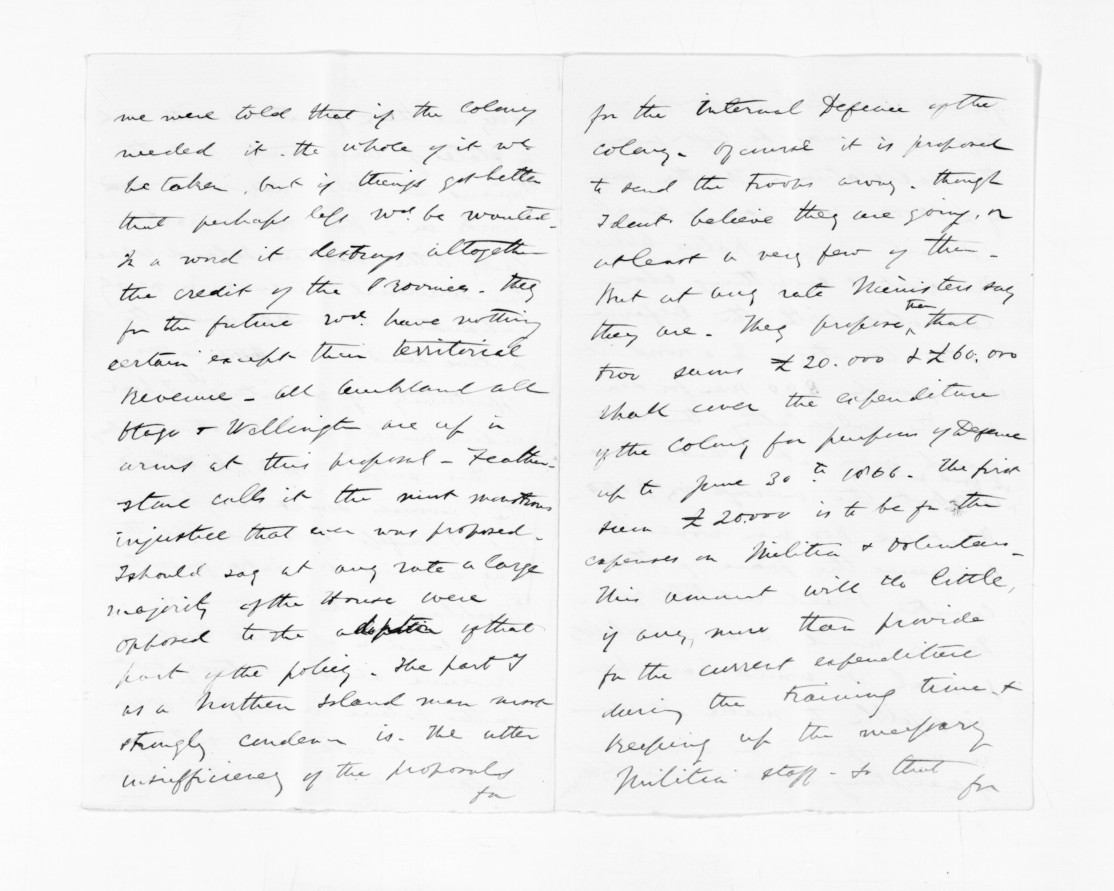 we were told that if the Colony
needed it - the whole of it wd
be taken, but if things got better
that perhaps less wd. be wanted -
In a word it destroys altogether
the credit of the Provinces. They
for the future wd. have nothing
certain except their territorial
Revenue - all Auckland all
Otago & Wellington are up in
arms at this proposal - Feather-
stone calls it the most monstrous
injustice that ever was proposed -
I should say at any rate a large
majority of the House were
opposed to the adoption of that
part of the policy. The part I
as a Northern Island man most
strongly condemn is - the utter
insufficiency of the proposals
for
for the internal Defence of the
Colony - Of course it is proposed
to send the Troops away - though
I dont believe they are going, or
at least a very few of them -
But at any rate Ministers say
they are - They propose, then that
two sums £20.000 & £60.000
shall cover the expenditure
of the Colony for purposes of Defence
up to June 30th 1866 - The first
sum £20.000 is to be for the
expenses on Militia & Volunteers -
This amount will do little,
if any, more than provide
for the current expenditure
during the training time - &
keeping up the necessary
Militia staff - So that
for